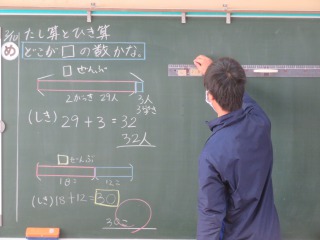 たし算とひき算
め どこが□の数かな。
□ ぜんぶ
2がっき 29人 3人
(しき) 29+3=32
32人
□ ぜんぶ
18こ 12こ
(しき) 18+12=30
30こ